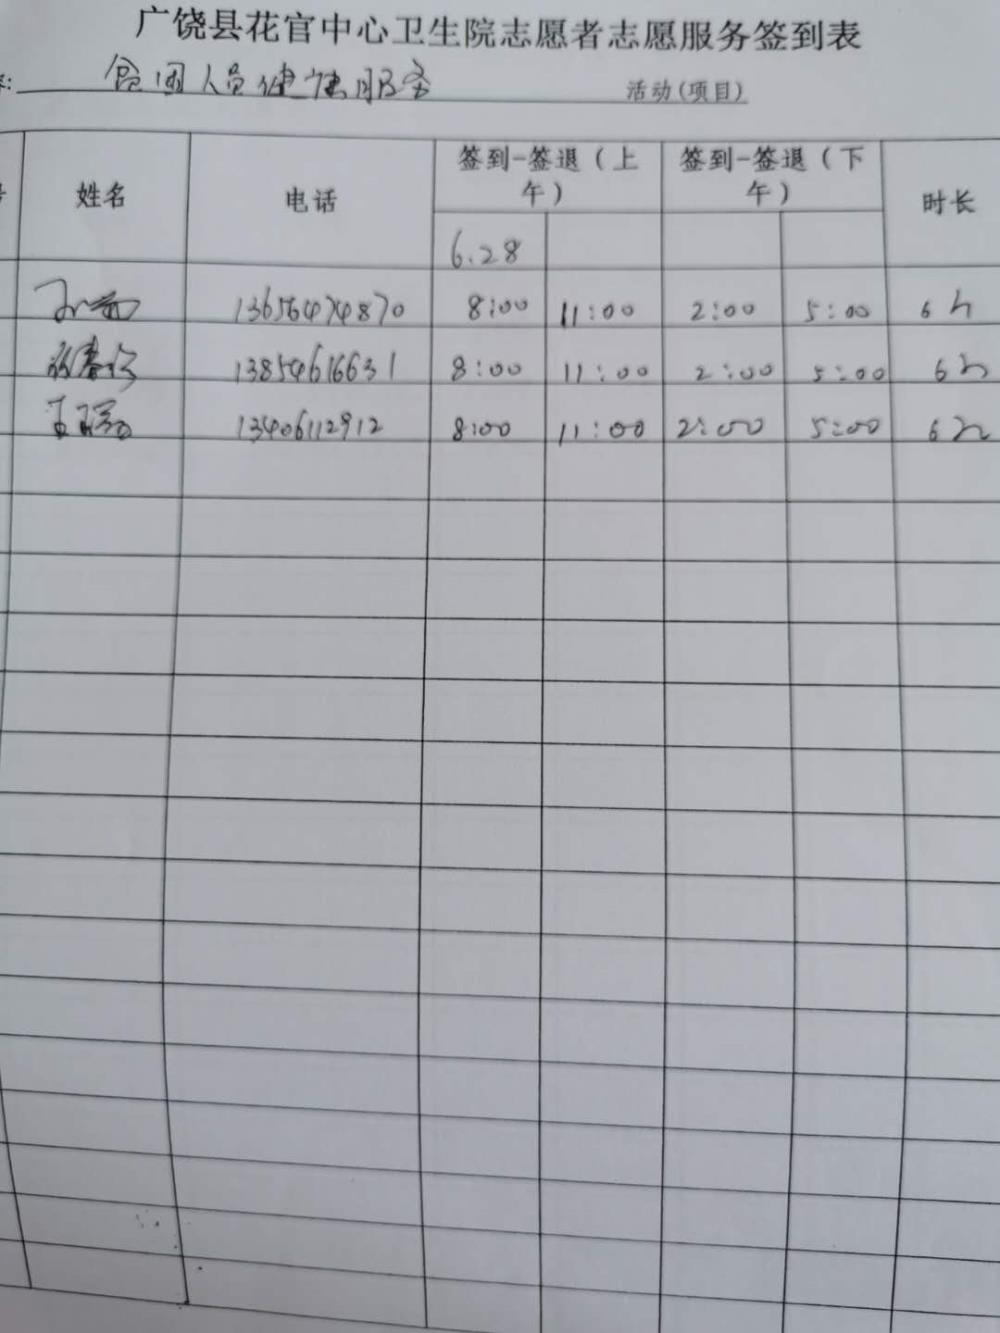 广饶县花官中心卫生院志愿者志愿服务签到表
贫困人员健康服务 活动(项目)
姓名 电话 签到-签退（上午） 签到-签退（下午） 时长
6.28
13656474870 8:00 11:00 2:00 5:00 6h
13854616631 8:00 11:00 2:00 5:00 6h
13406112912 8:00 11:00 2:00 5:00 6h